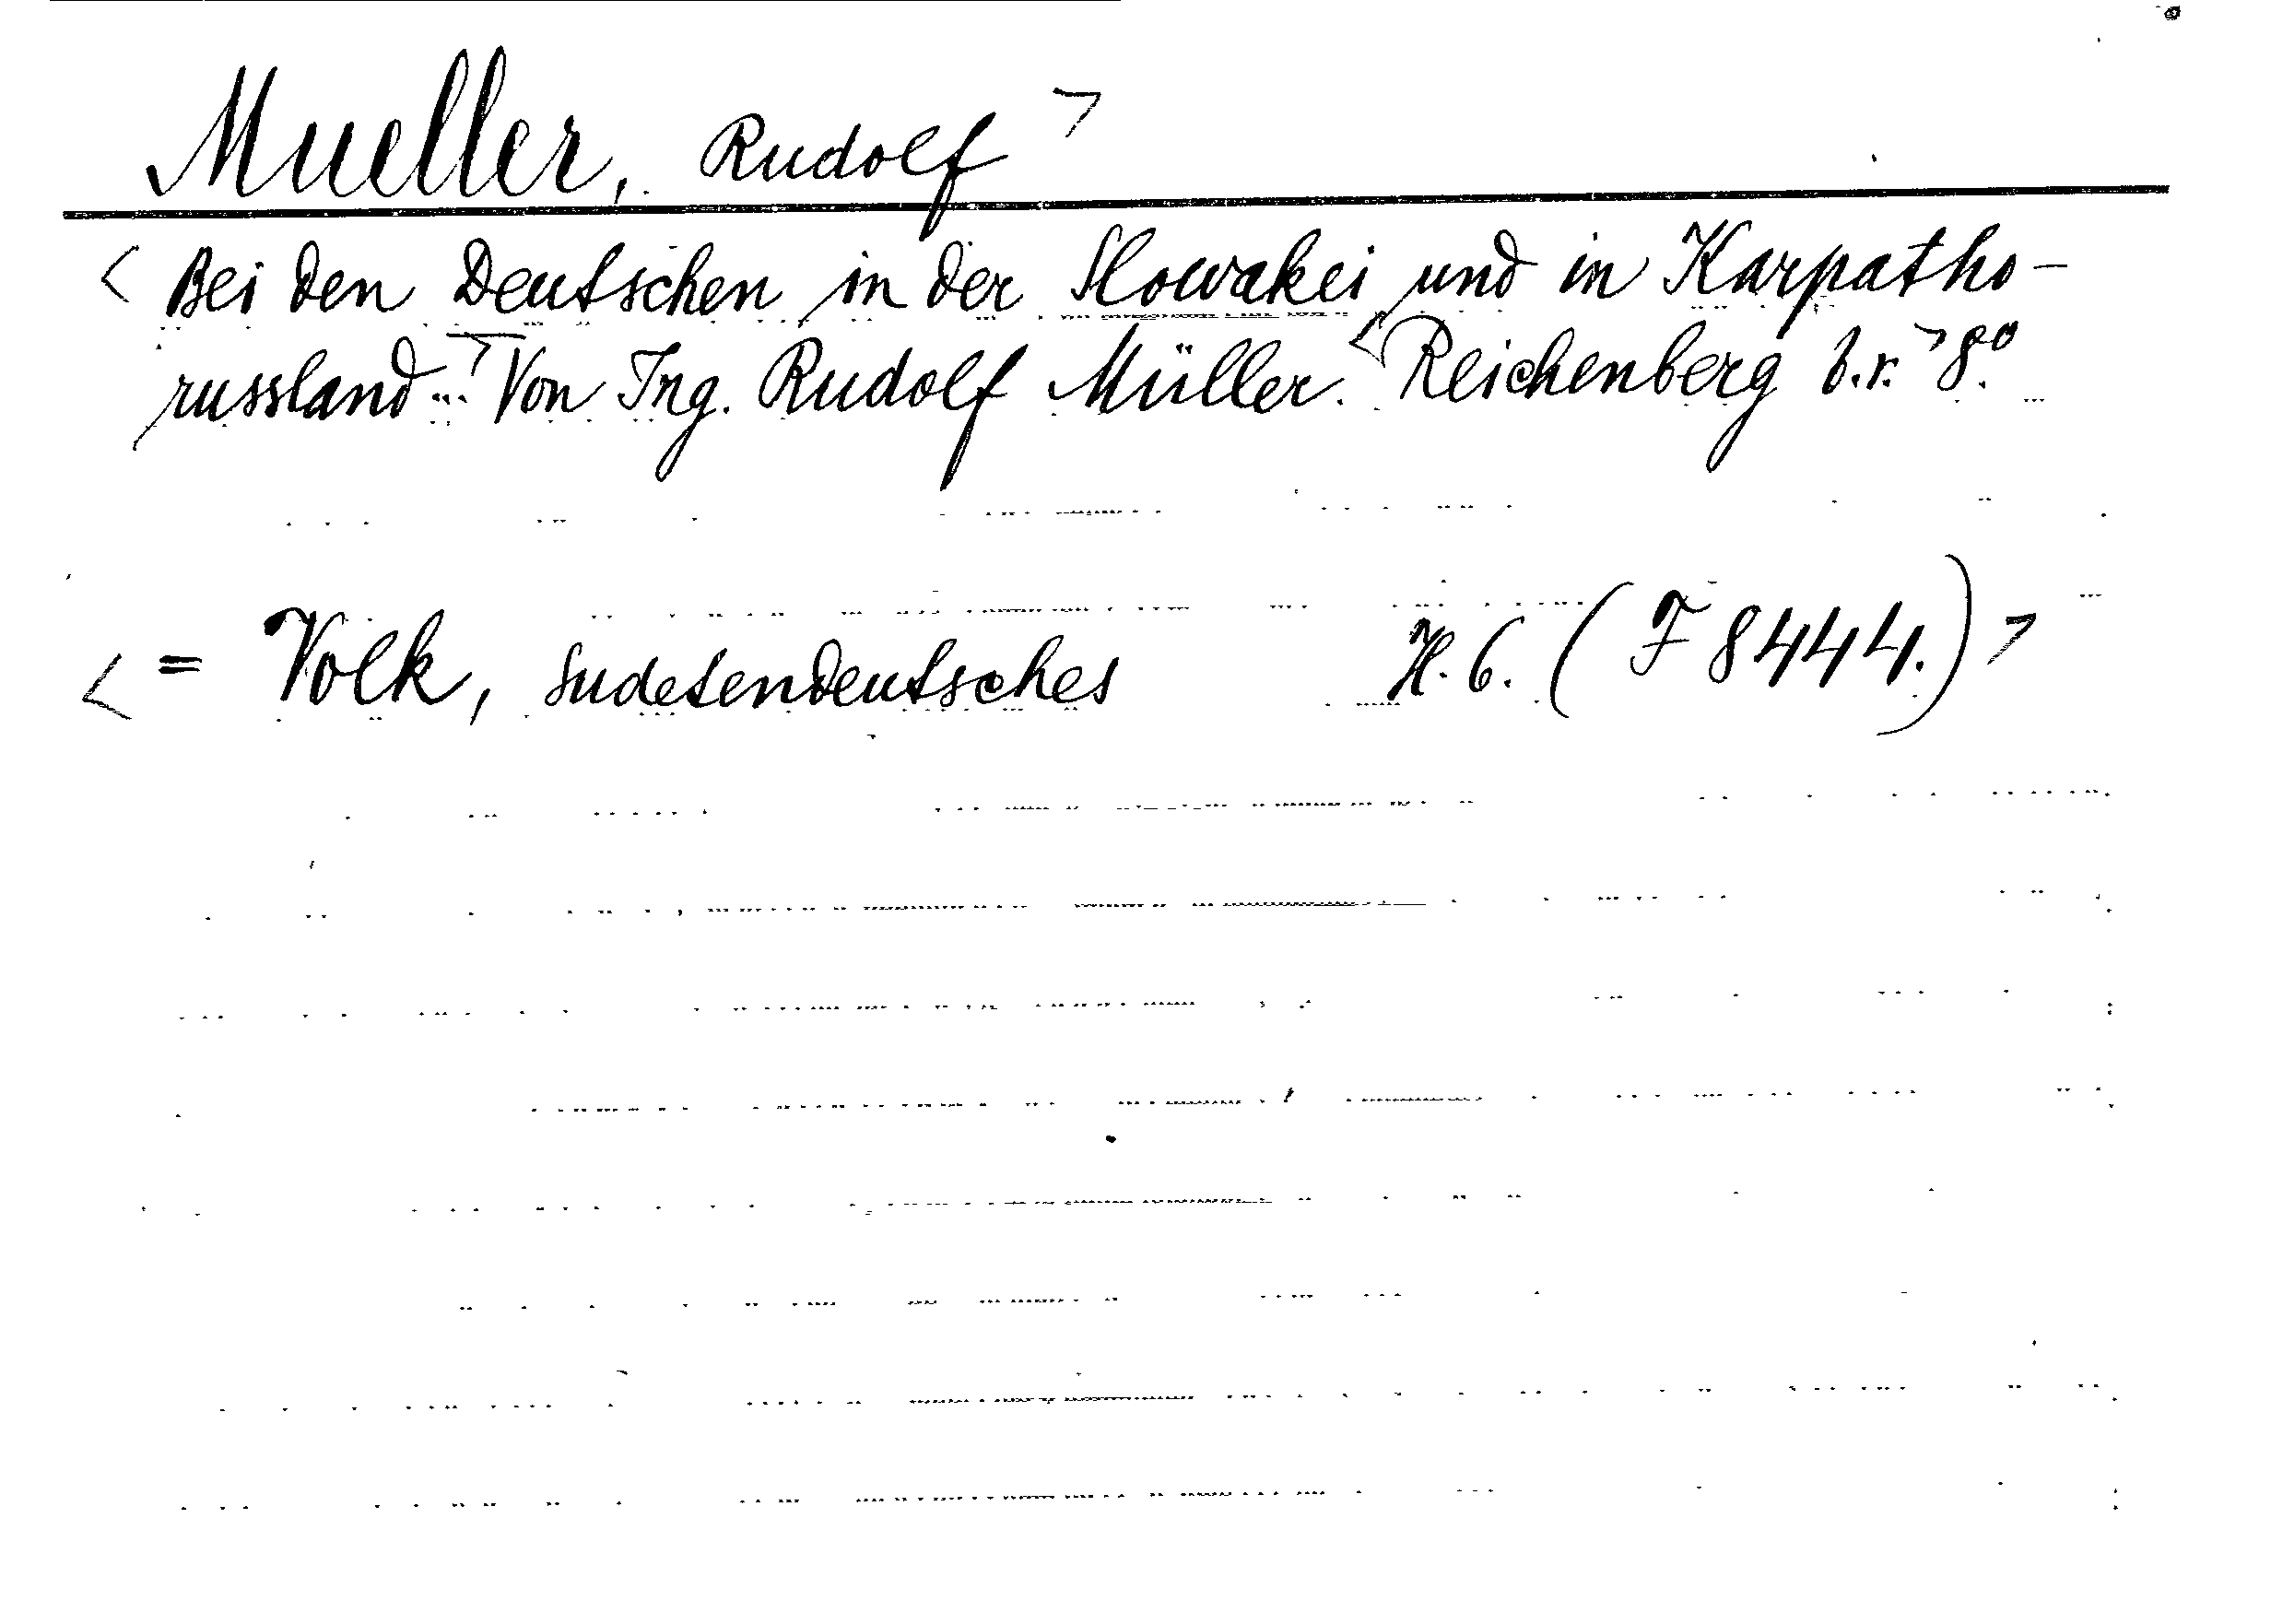 Mueller, Rudolf >
< Bei den Deutschen in der Slowakei und in Karpatho-
russland...> Von Ing. Rudolf Müller. < Reichenberg b.r. > 8.°
< = Volk, sudetendeutsches H. 6. (F 8444.) >